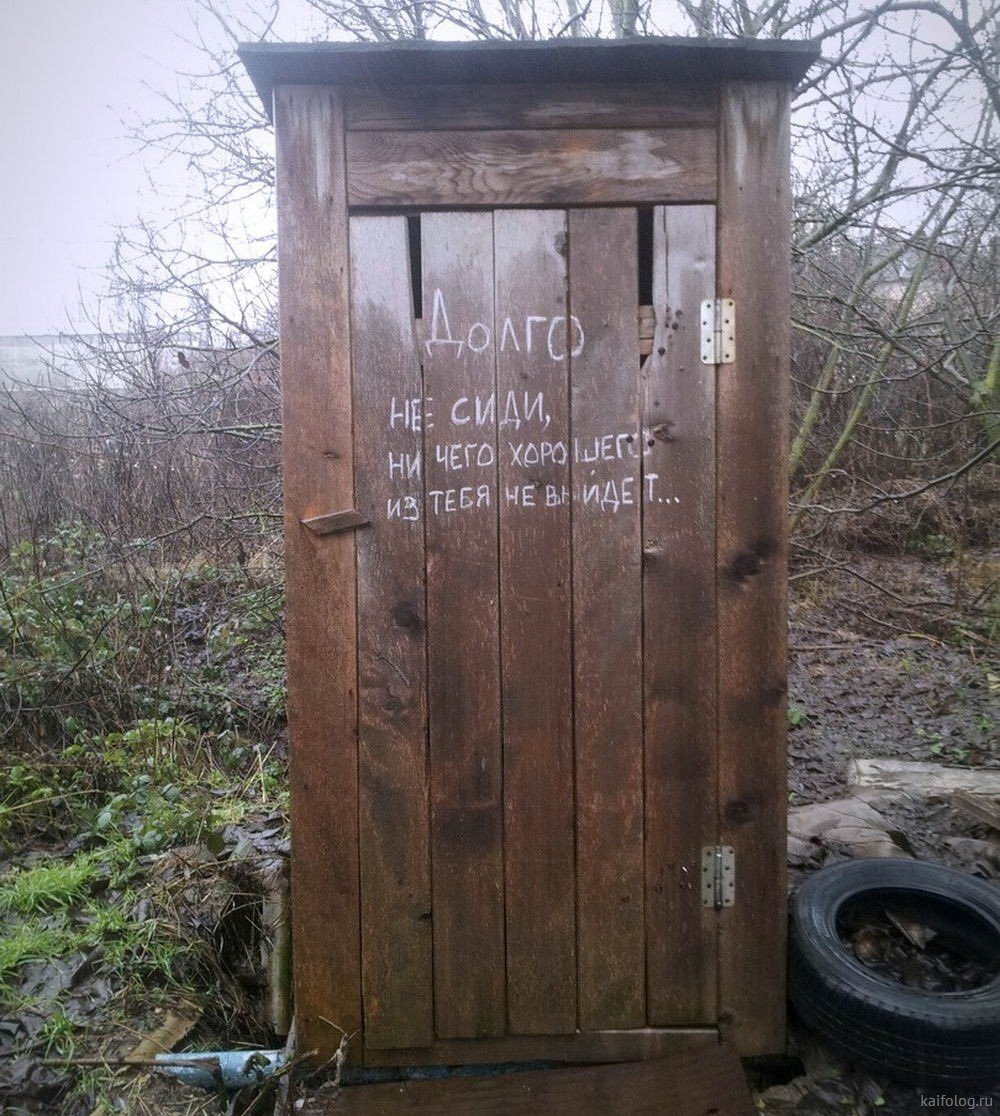 Долго
не сиди,
ни чего хорошего
из тебя не выйдет...
kaifolog.ru